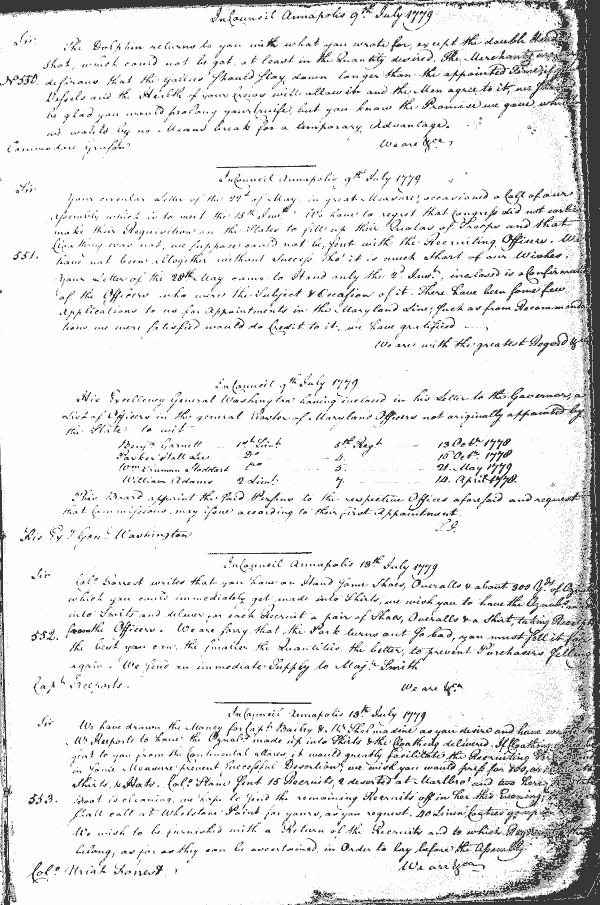 In Council Annapolis 9th July 1779
Sir
The Dolphin returns to you with what you wrote for, except the double Head
Shot, which could not be got, at least in the Quantity desired. The Merchants are
No 550. desirous that the Gallies should stay down longer than the appointed Time, if
Vessels and the Health of your Crews will allow it and the Men agree to it, we
be glad you would prolong your Cruise, but you know the Promise we gave, which
we would by no Means break for a temporary Advantage.
Commodore Grason
We are &ca
In Council Annapolis 9th July 1779
Sir
Your circular Letter of the 22d of May, in great Measure, occasioned a Call of our
Assembly which is to meet the 15th Inst. We have to regret that Congress did not earlier
make their Requisition on the States to fill up their Quotas of Troops and that
551. Cloathing was not, we suppose could not be, sent with the Recruiting Officers. We
have not been altogether without Success tho' it is much Short of our Wishes.
Your Letter of the 28th May came to Hand only the 2d Inst, inclosed is a Confirmation
of the Officers who were the Subject & Occasion of it. There have been some few
Applications to us for Appointments in the Maryland Line; Such as from Recommenda
tions we were satisfied would do Credit to it, we have gratified
We are with the greatest Regard &ca
In Council 9th July 1779
His Excellency General Washington having inclosed in his Letter to the Governor, a
List of Officers in the general Roster of Maryland Officers not originally appointed by
the State to wit
Benja Garnett 1st Lieut 5th Regt 13 Octr 1778
Parker Hall Lee Do 4. 15 Octr 1778
Wm Truman Stoddert Do 5. 21 May 1779
William Adams 2 Lieut 7. 14 April 1778
This Board appoint the said Persons to the respective Offices aforesaid and request
that Commissions may issue according to their first Appointment
His Exy Genl Washington
In Council Annapolis 13th July 1779
Sir
Colo Forrest writes that you have on Hand some Shoes, Overalls & about 300 Yds of
which you could immediately get made into Shirts, we wish you to have the
into Shirts and deliver, for each Recruit a pair of Shoes, Overalls & a Shirt, taking Receipts
552. from the Officers. We are sorry that the Pork turns out so bad, you must sell it for
the best you can, the smaller the Quantities the better, to prevent Purchasers selling
again. We send an immediate Supply to Majr Smith
Capt Keeports.
We are &ca
In Council Annapolis 13th July 1779
Sir
We have drawn the Money for Capt Bailey & Mr Shelmadine as you desire and have
Mr Keeports to have the made up into Shirts & the Cloathing delivered. If Cloathing
sent to you from the Continental Stores, it would greatly facilitate the Recruiting
in some Measure prevent successful Desertion, we wish you would
Shirts, & Hats. Colo Stone sent 15 Recruits, 2 deserted at Marlbro' and two here
553. Boat is cleaning, we hope to send the remaining Recruits off in her this Evening;
shall call at Whetstone Point for yours, as you request. 40 Linen
We wish to be furnished with a Return of the Recruits and to which
belong, as far as they can be ascertained, in Order to lay before the Assembly
Colo Uriah Forrest
We are &ca